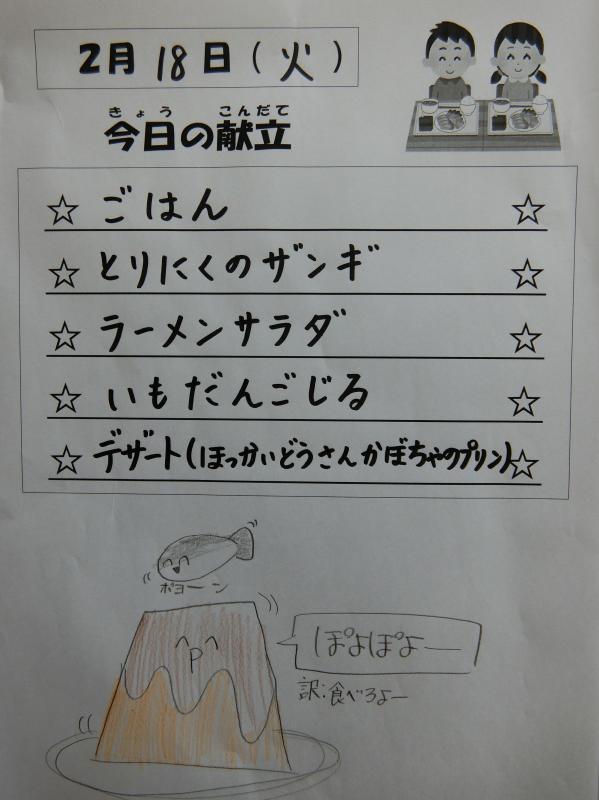 2月18日(火)
きょう こんだて
今日の献立
☆ ごはん ☆
☆ とりにくのザンギ ☆
☆ ラーメンサラダ ☆
☆ いもだんごじる ☆
☆ デザート(ほっかいどうさんかぼちゃのプリン)☆
ポヨーン
ぽよぽよー
訳:食べろよー